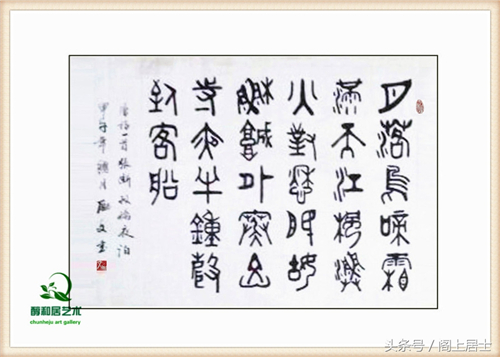 月落烏啼霜
滿天江楓漁
火對愁眠姑
蘇城外寒山
寺夜半鐘聲
到客船
唐诗一首張継枫橋夜泊
甲午年月書
醇和居艺术
shunheju art gallery
头条号／阁上居士